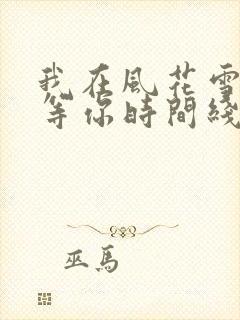 我在風花雪
等你時間綫
巫馬